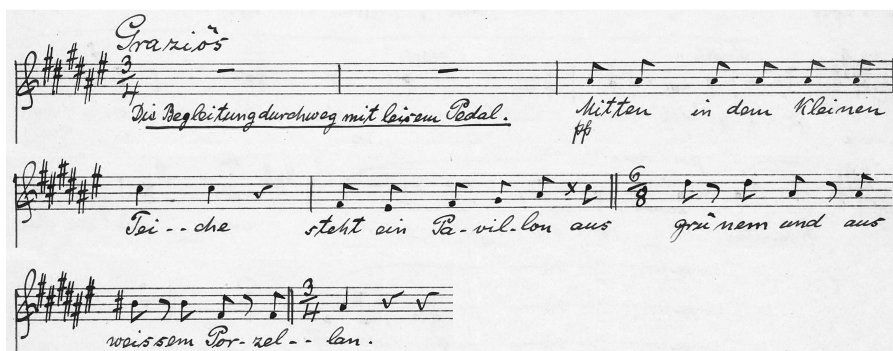 Graziös
3/4
Die Begleitung durchweg mit leisem Pedal.
Mitten in dem Kleinen
pp
Tei--che steht ein Pa-vil-lon aus grünem und aus
6/8
weissem Por-zel-- lan.
3/4